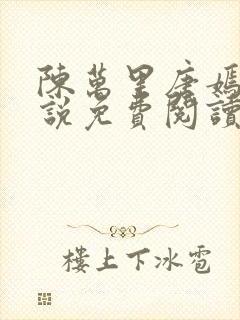 陳萬里唐嫣
說免費閱讀
樓上下冰雹